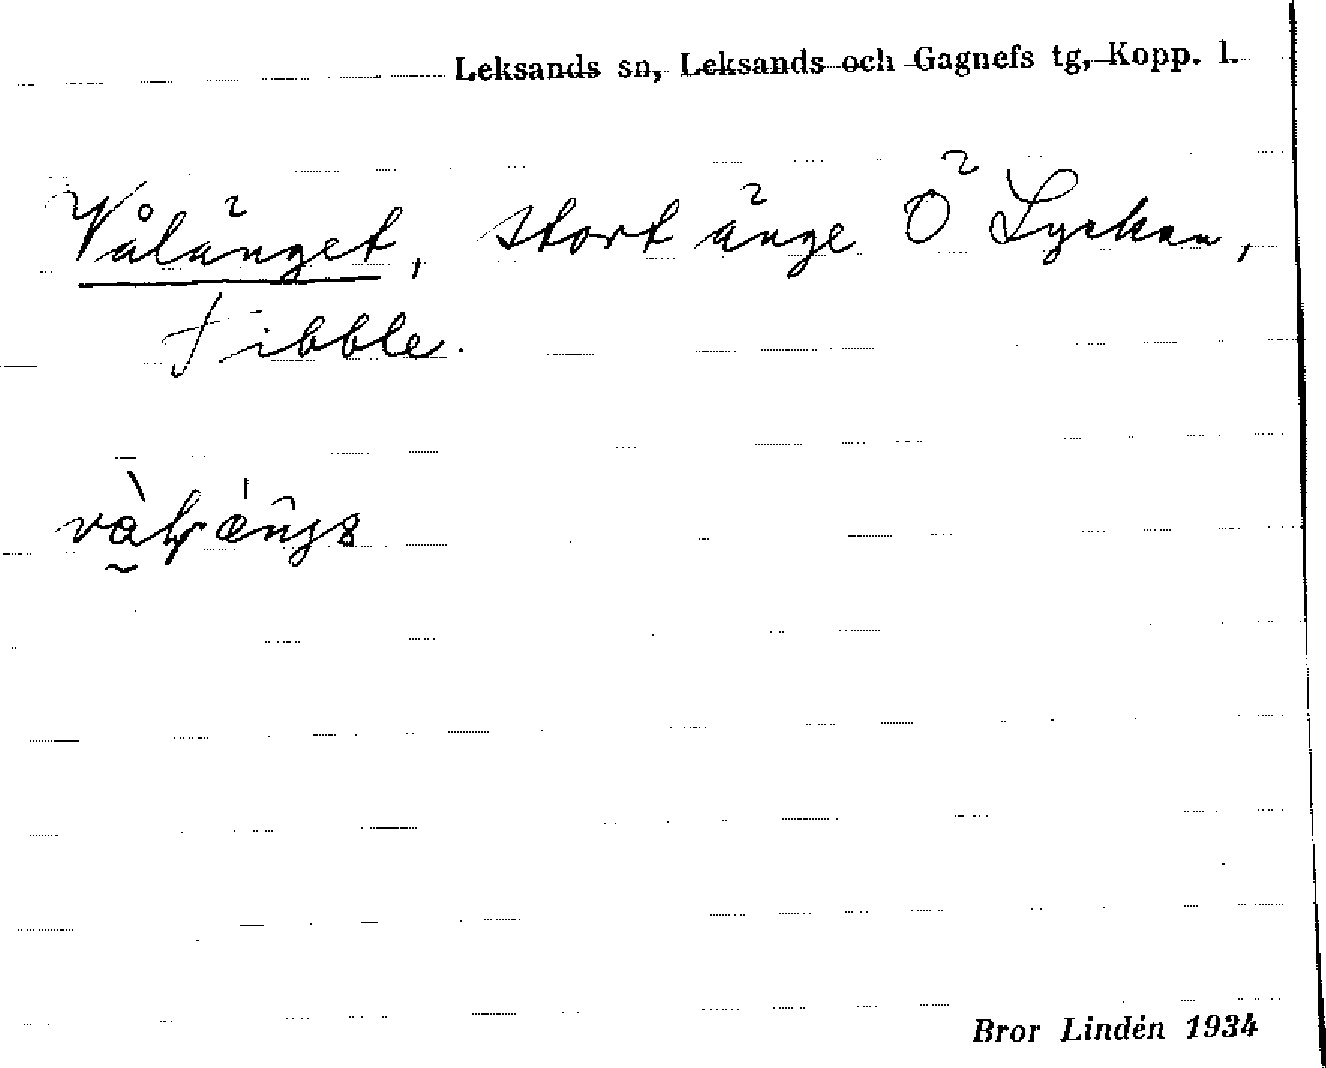 Leksands sn, Leksands och Gagnefs tg, Kopp. l.
Vålänget, stort änge Ö Lyckan,
Tibble.
Bror Lindén 1934